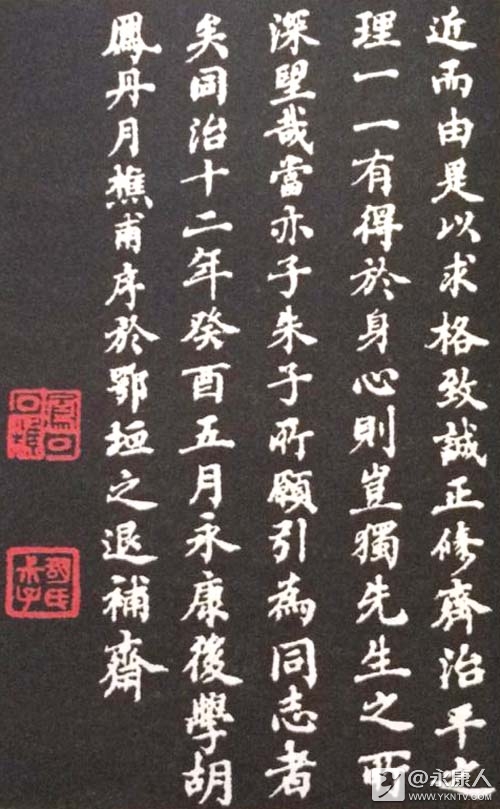 近而由是以求格致誠正修齊治平之
理一一有得於身心則豈獨先生之所
深朢哉當亦子朱子所願引為同志者
矣同治十二年癸酉五月永康後學胡
鳳丹月樵甫序於鄂垣之退補齋
@永康人
WWW.YKNTV.COM